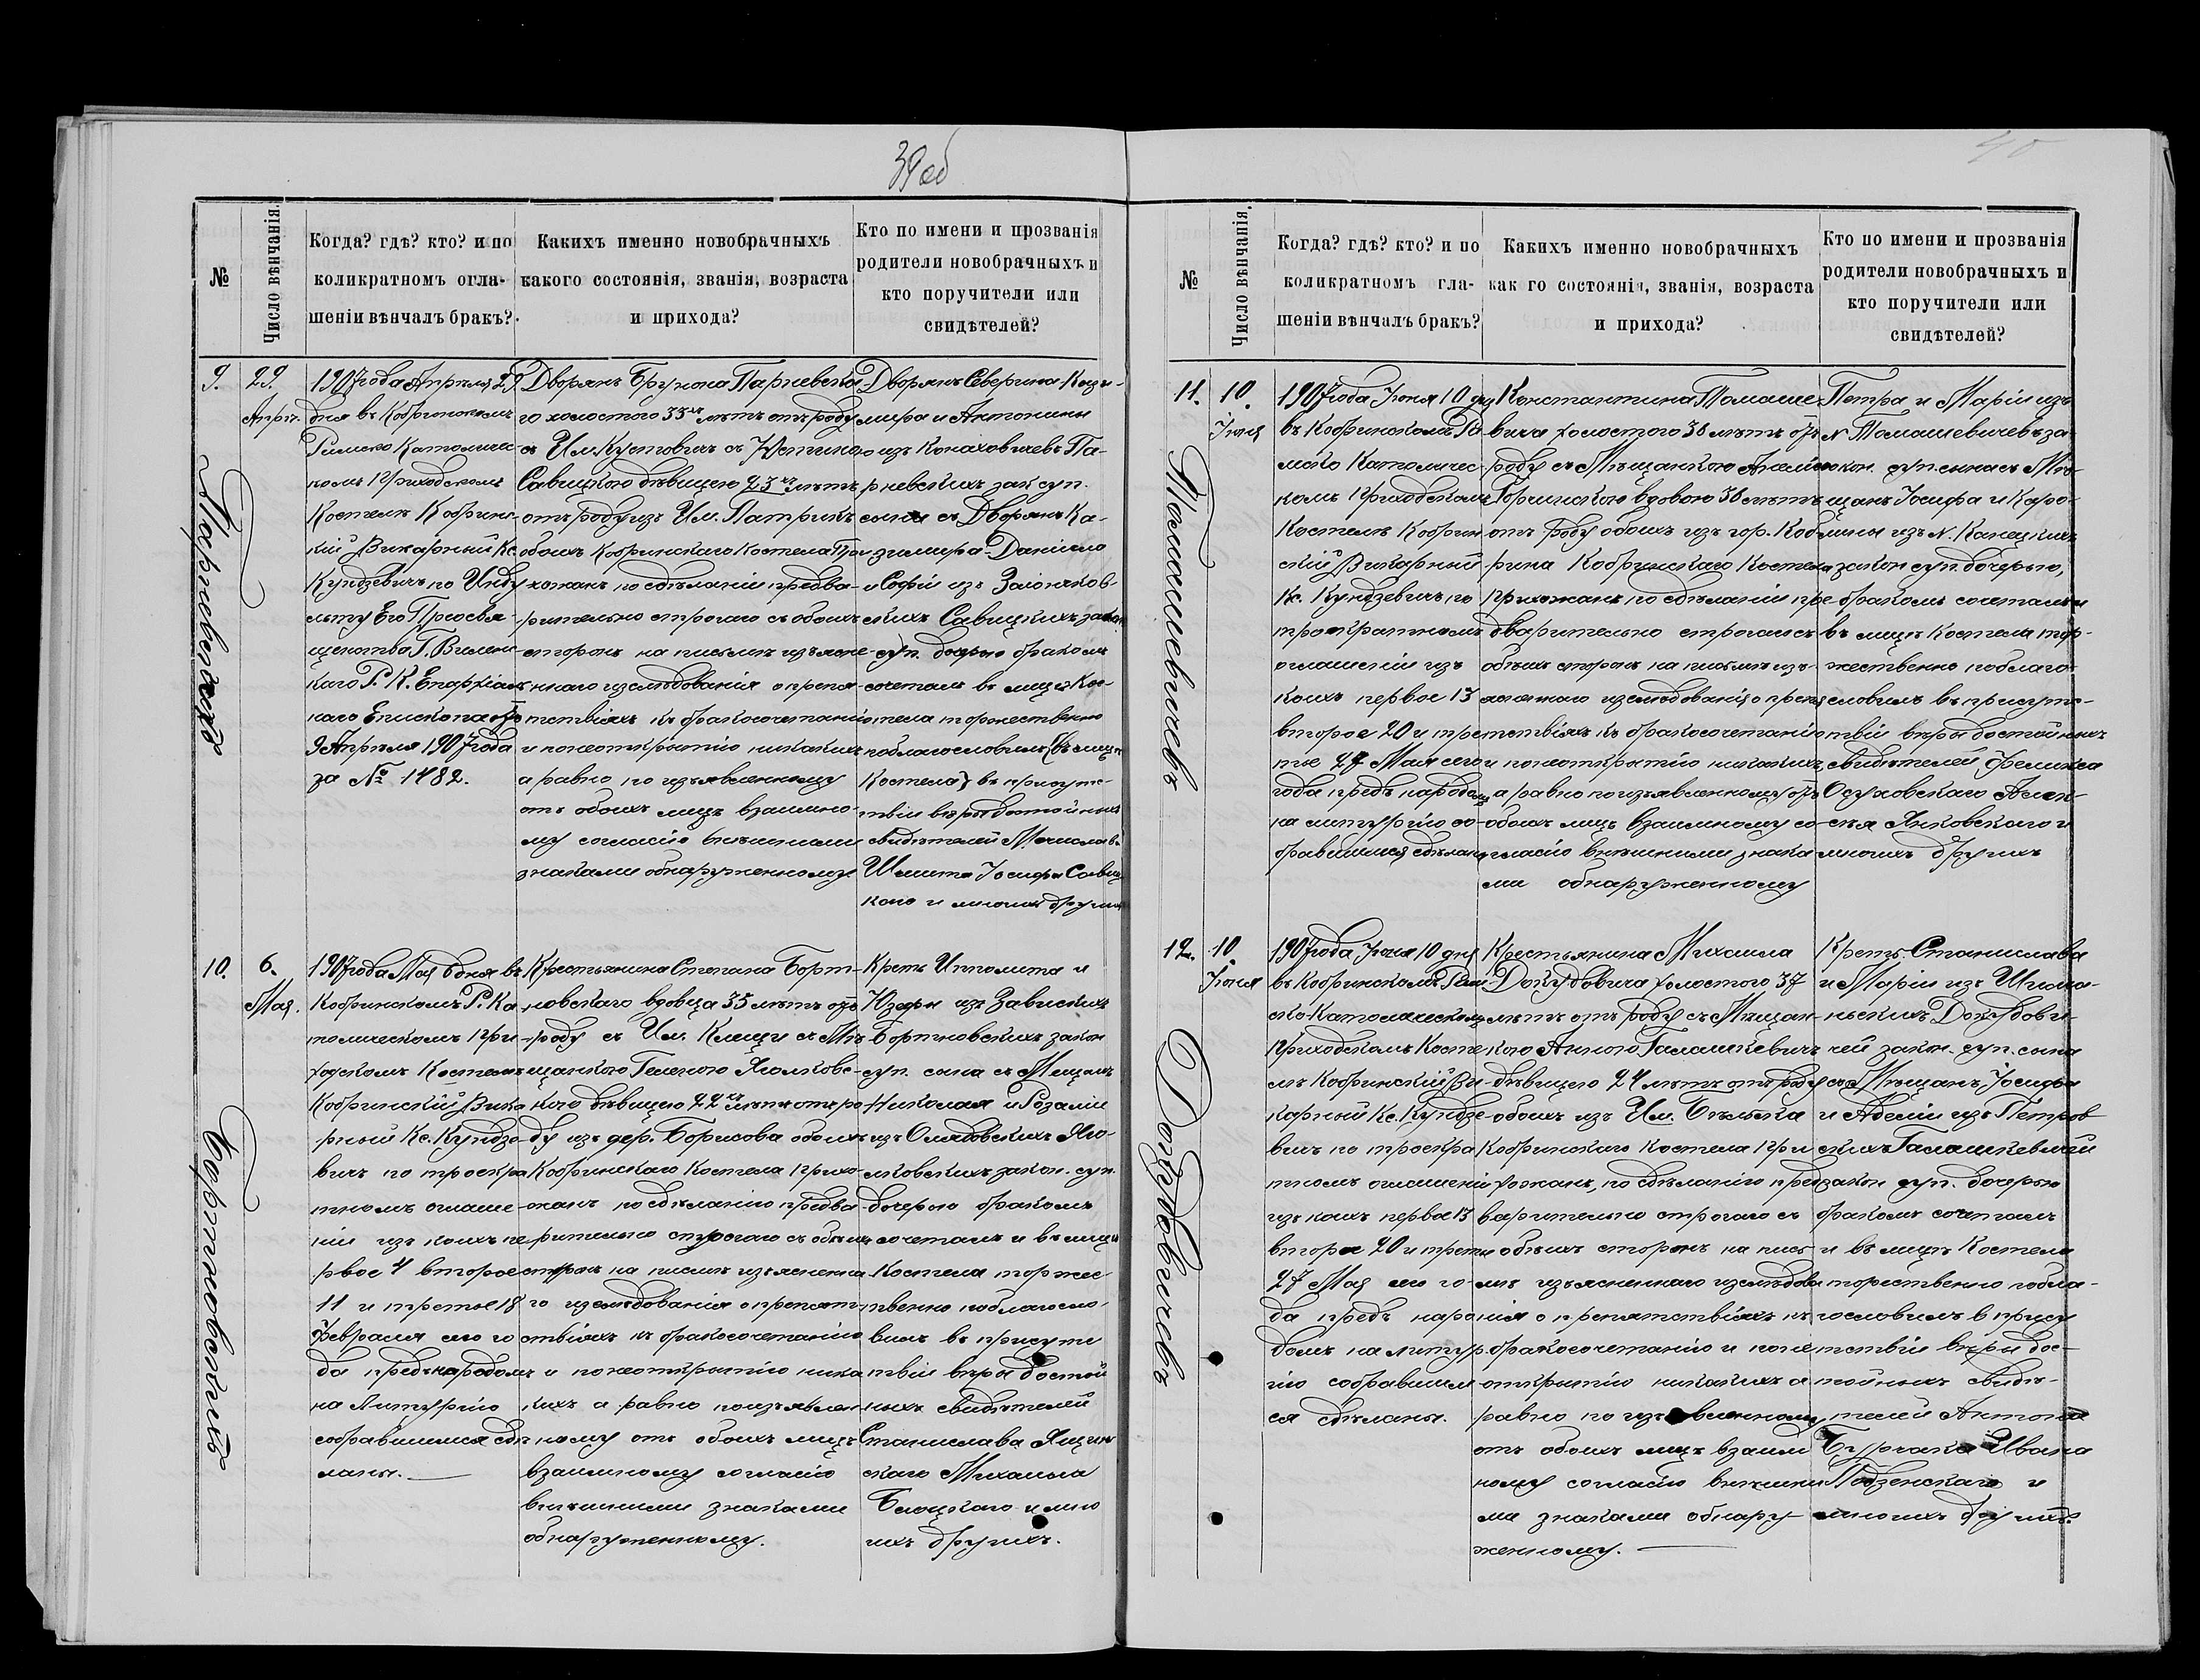 39об
№
Число вѣнчанія.
Когда? гдѣ? кто? и по
коликратномъ огла-
шеніи вѣнчалъ бракъ?
Какихъ именно новобрачныхъ
какого состоянія, званія, возраста
и прихода?
Кто по имени и прозванія
родители новобрачныхъ и
кто поручители или
свидѣтелей?
9.
29.
Апрѣ.
Парневскихъ
1907 года Апрѣля 29
дня въ Кобринскомъ
Римско Католичес
комъ Приходскомъ
Костелѣ Кобринс-
кій Викарный Кс.
Кундзевичъ по Инду
льту Его Преосвя-
щенства Г. Виленс
каго Р. К. Епархіаль
наго Епископа отъ
9 Апрѣля 1907 года
за № 1482.
Дворянъ Бруноna Парневска
го холостого 33хъ лѣтъ отъ роду
съ Им. Кустовичъ съ Устиною
Савицкою дѣвицею 23хъ лѣтъ
отъ роду изъ Им. Патрикъ
обоихъ Кобринскаго Костела При
хожанъ по сдѣланіи предва-
рительно строгаго съ обоихъ
сторонъ на письмѣ изъясне
ннаго изслѣдованія о препя-
тствіяхъ къ бракосочетанію
и по неоткрытію никакихъ
а равно по изъявленному
отъ обоихъ лицъ взаимно-
му согласію внѣшними
знаками обнаруженному
Дворянъ Северина Кази-
мира и Антонины
изъ Конаховичевъ Па-
рневскихъ зак. суп.
сына съ Дворянъ Ка-
зимира-Даніила
и Софіи изъ
скихъ Савицкихъ закон.
суп. дочерью бракомъ
сочеталъ въ лицѣ Кос-
тела торжественно
поблагословилъ (въ лицѣ
Костела) въ присутс-
твіи вѣры достойныхъ
свидѣтелей Мечислава
Шмита Іосифа Савиц
каго и многихъ другихъ
10.
6.
Мая.
Бортновскій
1907 года Мая 6 дня въ
Кобринскомъ Р. Ка
толическомъ При-
ходскомъ Костелѣ
Кобринскій Вика
рный Кс. Кундзе
вичъ по троекра
тномъ оглаше
ніи изъ коихъ пе
рвое 4 второе
11 и третье 18
Февраля сего го
да предъ народомъ
на Литургію
собравшимся сдѣ
ланы.
Крестьянина Степана Борт-
новскаго вдовца 35 лѣтъ отъ
роду съ Им. Клещи съ Мѣ
щанкою Геленою Яголковс-
кою дѣвицею 22хъ лѣтъ отъ ро
ду изъ дер. Борисова обоихъ
Кобринскаго Костела прихо-
жанъ по сдѣланію предва-
рительно строгаго съ обѣихъ
сторонъ на письмѣ изъясненна
го изслѣдованія о препят-
ствіяхъ къ бракосочетанію
и по неоткрытію ника
кихъ а равно по изъявлен
ному отъ обоихъ лицъ
взаимному согласію
внѣшними знаками
обнаруженному.
Крест. Ипполита и
Юзефы изъ Завискихъ
Бортновскихъ закон
суп. сына съ Мещанъ
Николая и Розаліи
изъ
закон. суп.
дочерью бракомъ
сочеталъ и въ лицѣ
Костела торжес-
твенно поблагосло-
вилъ въ присутс
твіи вѣры достой
ныхъ свидѣтелей
Станислава
скаго Михаила
и мно
гихъ другихъ.
40
№
Число вѣнчанія.
Когда? гдѣ? кто? и по
коликратномъ гла-
шеніи вѣнчалъ бракъ?
Какихъ именно новобрачныхъ
как го состоянія, званія, возраста
и прихода?
Кто по имени и прозванія
родители новобрачныхъ и
кто поручители или
свидѣтелей?
11.
10.
Іюня
Томашевичевъ
1907 года Іюня 10 дня
въ Кобринскомъ Ри
мско Католичес
комъ Приходскомъ
Костелѣ Кобрин
скій Викарный
Кс. Кундзевичъ по
троекратномъ
оглашеніи изъ
коихъ первое 13
второе 20 и тре
тье 27 Мая сего
года предъ народомъ
на литургію со-
бравшимся сдѣланы
Константина Томаше
вича холостого 38 лѣтъ отъ
роду съ Мѣщанкою Анелію
вдовою 38 лѣтъ
отъ роду обоихъ изъ гор. Коб
рина Кобринскаго Костела
Прихожанъ по сдѣланіи пре
дварительно строгаго съ
обѣихъ сторонъ на письмѣ изъ-
ясненнаго изслѣдованія о препя
тствіяхъ къ бракосочетанію
и по неоткрытію никакихъ,
а равно по изъявленному отъ
обоихъ лицъ взаимному со-
гласію внѣшними знака
ми обнаруженному
Петра и Маріи изъ
N Томашевичевъ за-
кон. суп. сына съ Мѣ-
щанъ Іосифа и Каро-
лины изъ N. Канецкихъ
закон суп. дочерью,
бракомъ сочеталъ и
въ лицѣ Костела тор-
жественно поблаго-
словилъ въ присутс-
твіи вѣры достойныхъ
свидѣтелей Феликса
Осуховскаго Алек-
сѣя Янковскаго и
многихъ другихъ
12.
10.
Іюня
Докудовичевъ
1907 года Іюня 10 дня
въ Кобринскомъ Рим
ско-Католическомъ
Приходскомъ Косте
лѣ Кобринскій Ви-
карный Кс. Кундзе
вичъ по троекра
тномъ оглашеніи
изъ коихъ первое 13
второе 20 и третье
27 Мая сего го-
да предъ наро
домъ на литур-
гію собравшим
ся сдѣланы.
Крестьянина Михаила
Докудовича холостого 37
лѣтъ отъ роду съ Мѣщан-
кою Анною Галашкевичъ
дѣвицею 24 лѣтъ отъ роду
обоихъ изъ Им.
Кобринскаго Костела При
хожанъ, по сдѣланію пред
варительно строгаго съ
обѣихъ сторонъ на пись
мѣ изъясненнаго изслѣдова
нія о препятствіяхъ къ
бракосочетанію и по не
открытію никакихъ а
равно по изъявленному
отъ обоихъ лицъ взаим
ному согласію внѣшни
ми знаками обнару-
женному.
Крест. Станислава
и Маріи изъ Шима-
ньскихъ Докудови-
чей закон. суп. сына
съ Мѣщанъ, Іосифа
и Аделіи изъ Петров
скихъ Галашкевичей
закон суп. дочерью
бракомъ сочеталъ
и въ лицѣ Костела
торжественно побла-
гословилъ в присут
тствіи вѣры дос-
тойныхъ свидѣ-
телей Антона
Ивана
и
многихъ другихъ.